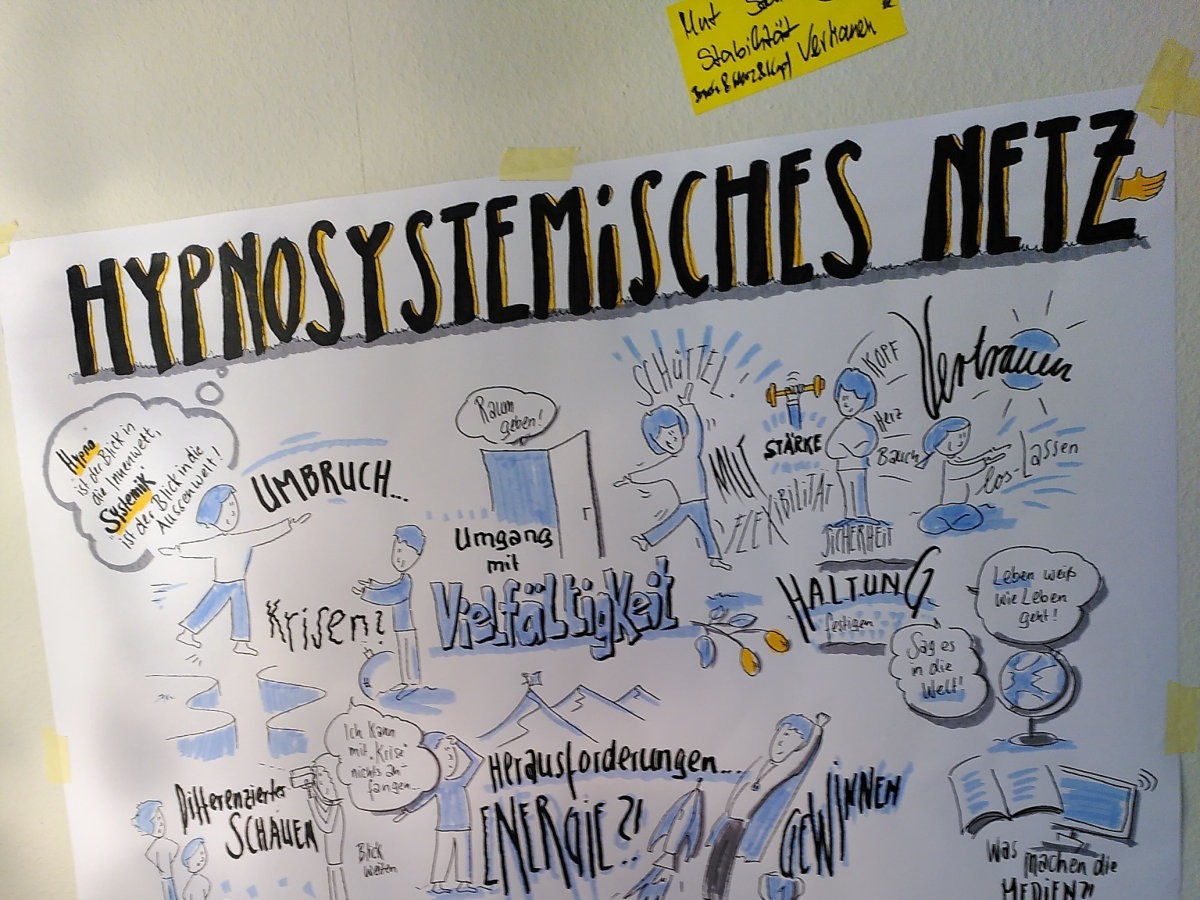 Mut
Stabilität
Bauch & Herz & Kopf Vertrauen
HYPNOSYSTEMiSCHES NETZ
Hypno
ist der Blick in
die Innenwelt,
Systemik
ist der Blick in die
Aussenwelt!
UMBRUCH...
Raum
geben!
SCHÜTTEL!
MUT
FLEXIBILITÄT
STÄRKE
KOPF
Herz
Bauch
SICHERHEIT
Vertrauen
los-lassen
Krisen?
Umgang
mit
Vielfältigkeit
HALTUNG
festigen
Leben weiß
wie Leben
geht!
Sag es
in die
Welt!
Ich kann
mit „Krise“
nichts an-
fangen...
Differenzierter
SCHAUEN
Blick
weiten
Herausforderungen...
ENERGIE?!
GEWINNEN
Was
machen die
MEDIEN?!